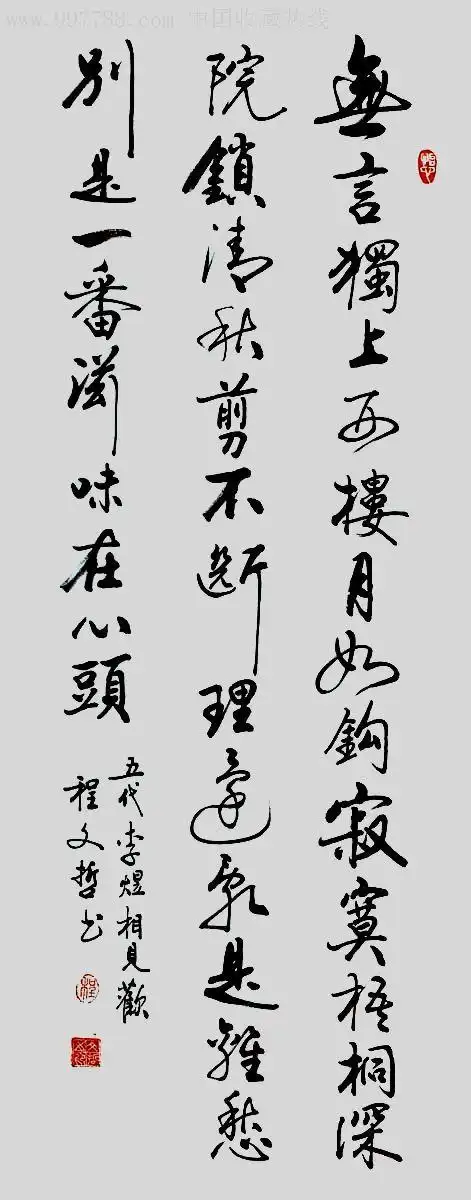 www.997788.com 中国收藏热线
無言獨上西樓月如鈎寂寞梧桐深
院鎖清秋剪不斷理還亂是離愁
別是一番滋味在心頭
五代李煜相見歡
程文哲书